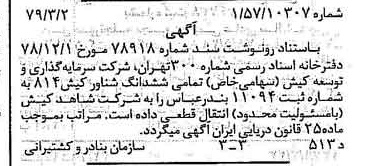 شماره ۱/۵۷/۱۰۳۰۷ ۷۹/۳/۲
آگهی
باستناد رونوشت سند شماره ۷۸۹۱۸ مورخ ۷۸/۱۲/۱
دفترخانه اسناد رسمی شماره ۳۰۰ تهران، شرکت سرمایه‌گذاری و
توسعه کیش (سهامی خاص) تمامی ششدانگ شناور کیش ۸۱۴ به
شماره ثبت ۱۱۰۹۴ بندرعباس را به شرکت شاهد کیش
(بامسئولیت محدود) انتقال قطعی داده است. مراتب بموجب
ماده ۲۵ قانون دریایی ایران آگهی میگردد.
د ۵۱۳ ۳-۳ سازمان بنادر و کشتیرانی